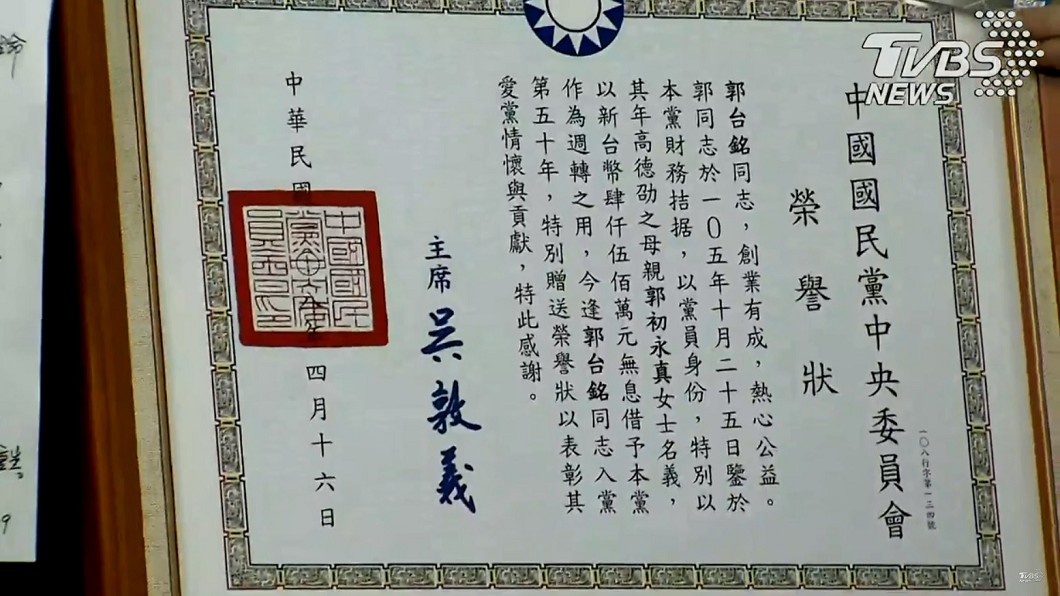 TVBS
NEWS
中國國民黨中央委員會
一〇八行字第一二四號
榮譽狀
郭台銘同志，創業有成，熱心公益。
郭同志於一〇五年十月二十五日鑒於
本黨財務拮据，以黨員身份，特別以
其年高德劭之母親郭初永真女士名義，
以新台幣肆仟伍佰萬元無息借予本黨
作為週轉之用，今逢郭台銘同志入黨
第五十年，特別贈送榮譽狀以表彰其
愛黨情懷與貢獻，特此感謝。
主席 吳敦義
中華民國 年四月十六日
中國國民
黨中央委
員會之印
TVBS